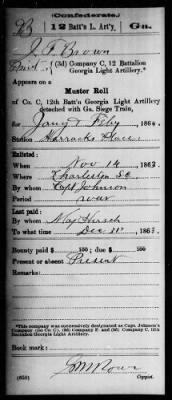 (Confederate.)
B 12 Batt'n L. Art'y. Ga.
J. F. Brown
Priv., (3d) Company C, 12 Battalion
Georgia Light Artillery.*
Appears on a
Muster Roll
of Co. C, 12th Batt'n Georgia Light Artillery
detached with Ga. Siege Train,
for Jany & Feby, 186
Station
Enlisted:
When Nov 14, 186
Where Charleston SC
By whom Capt Johnson
Period war
Last paid:
By whom Maj Hirsch
To what time Dec 31, 1863
Bounty paid $ 100; due $ 100
Present or absent Present
Remarks:
*This company was successively designated as Capt. Johnson's
Company
Battalion Georgia Light Artillery.
Book mark:
Copyist.